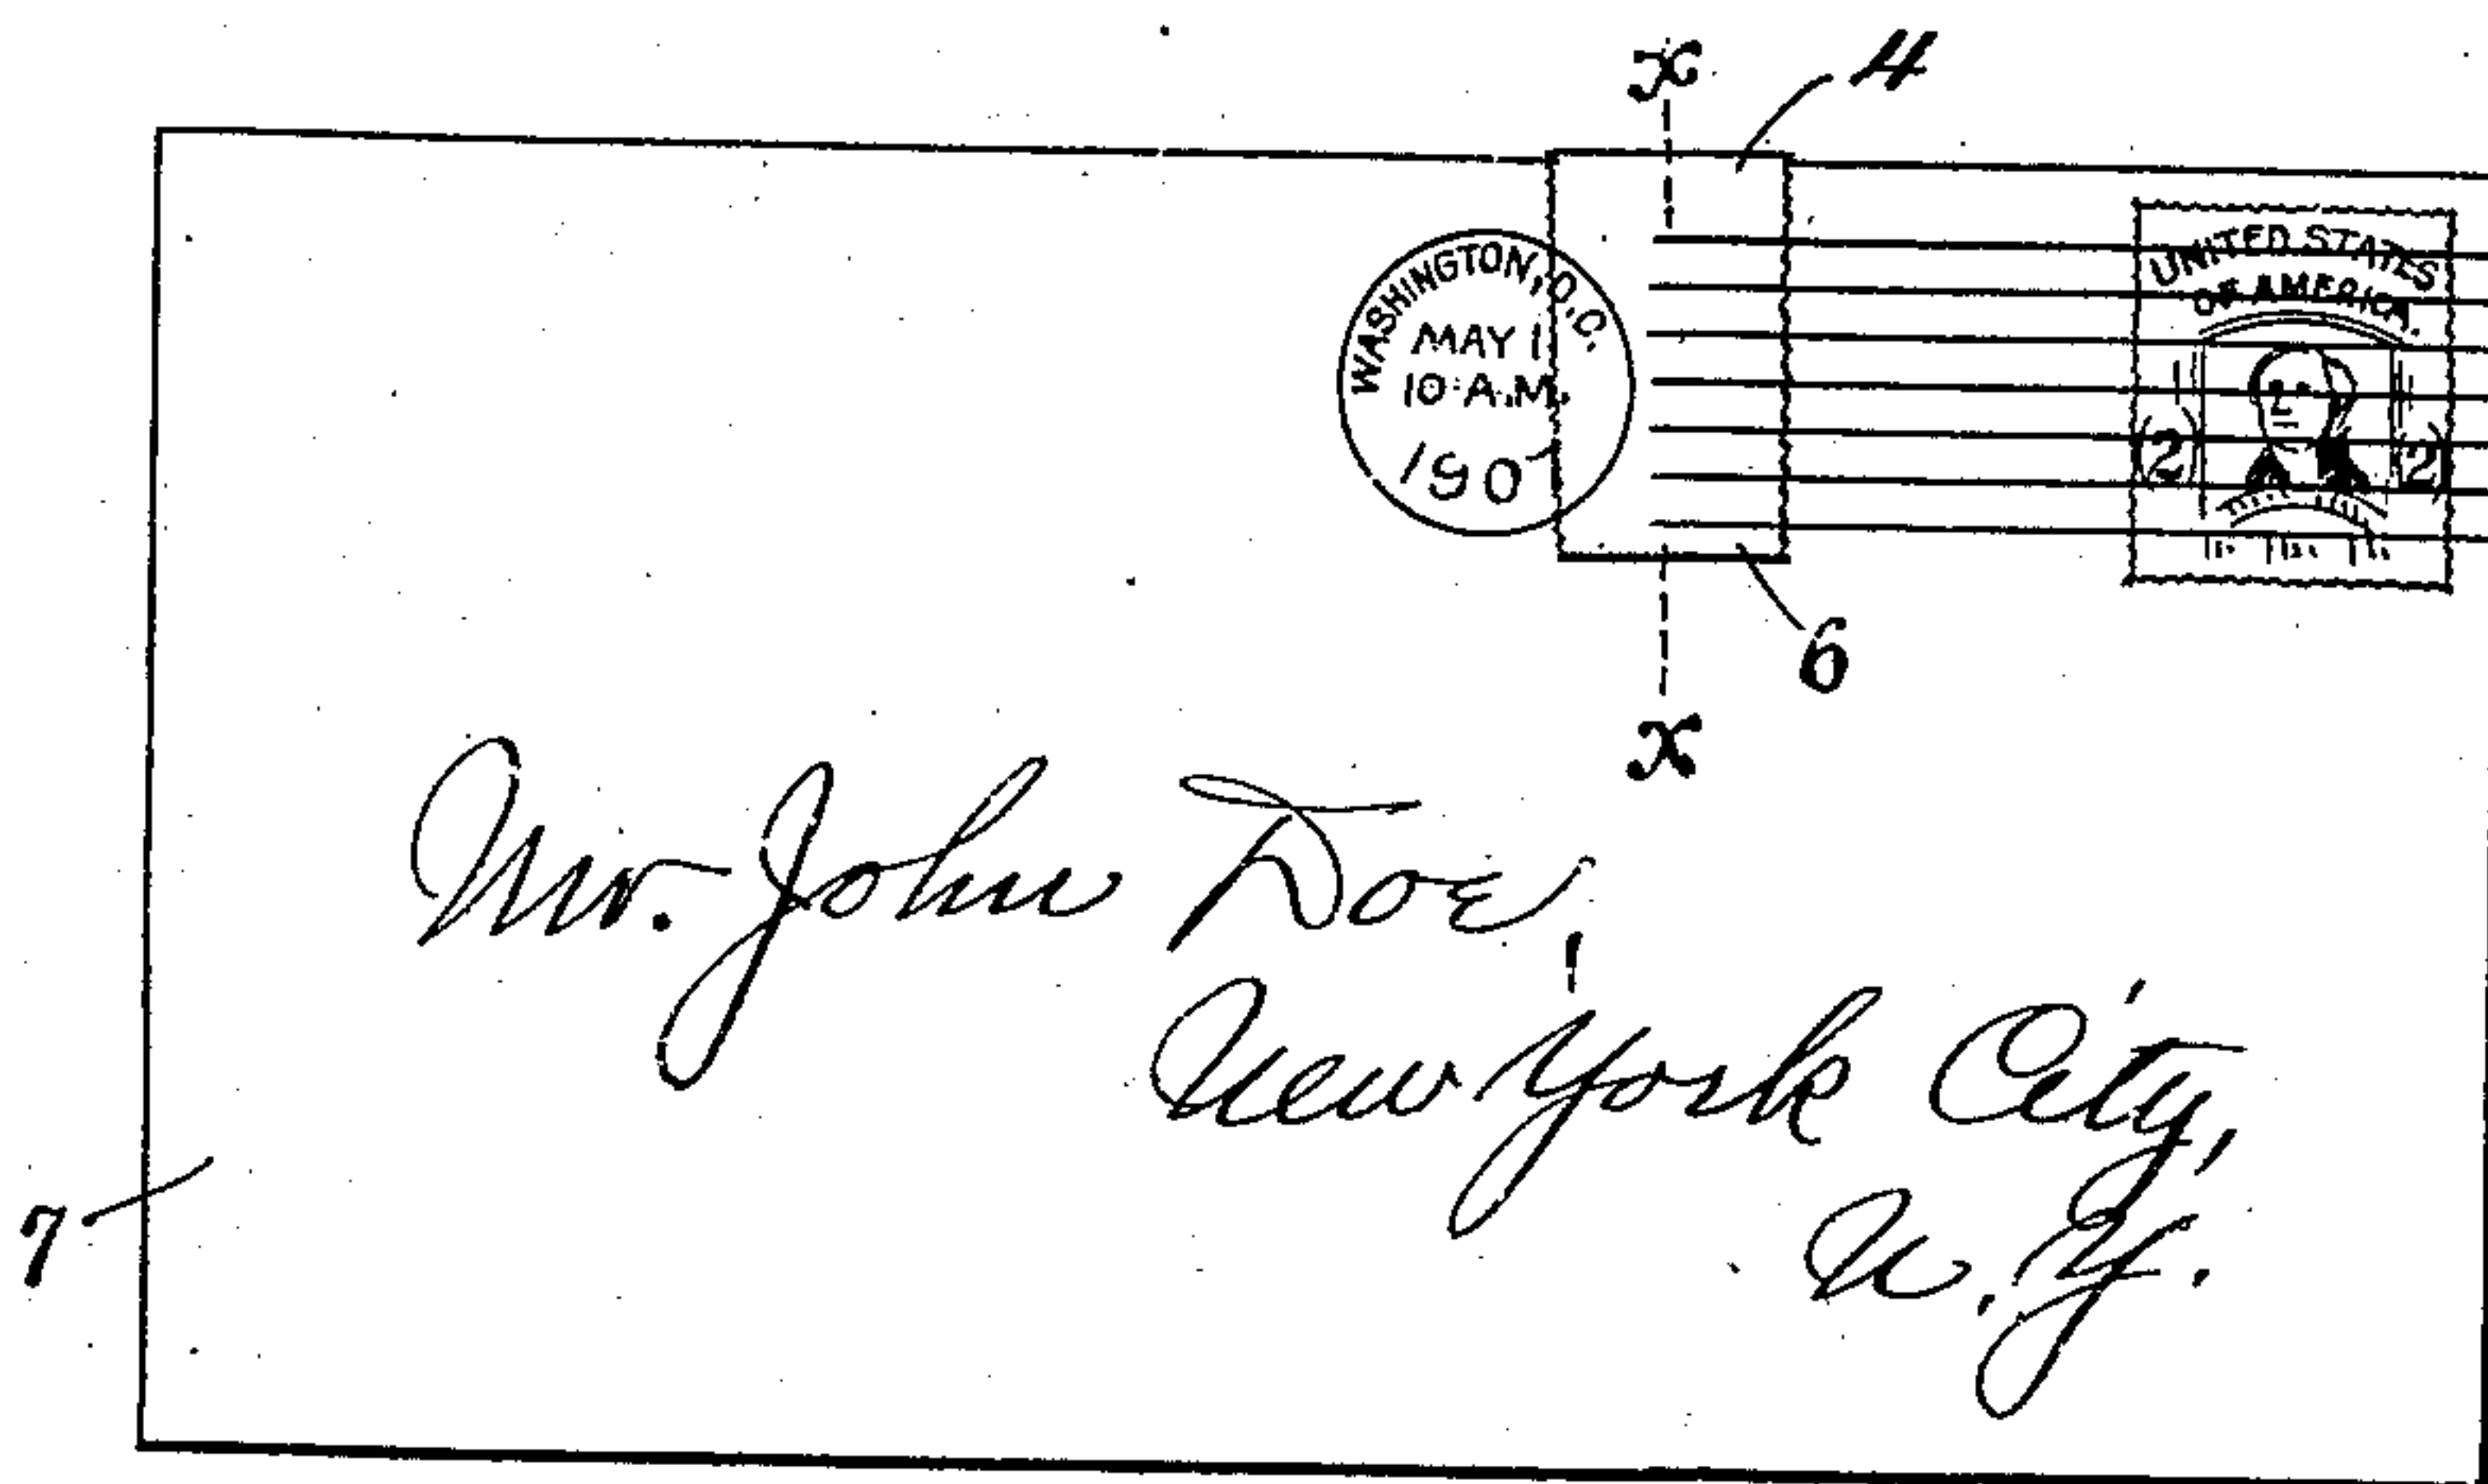 x 4
WASHINGTON, D.C.
MAY 1
10 A.M.
1907
UNITED STATES
OF AMERICA.
2 2
6
x
Mr. John Doe,
New York City,
N. Y.
7